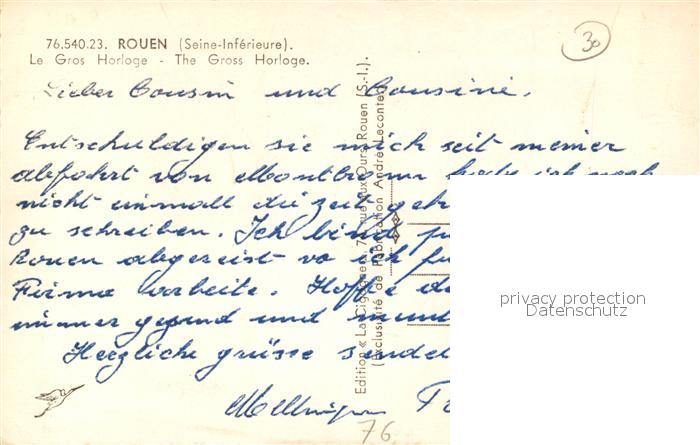 76.540.23. ROUEN (Seine-Inférieure).
Le Gros Horloge - The Gross Horloge.
30
Lieber Cousin und Cousine.
Entschuldigen sie mich seit meiner
abfahrt von habe ich noch
nicht einmall die zeit
zu schreiben. Ich bind
Rouen abgereist vo ich
Firma arbeite. Hoffe
immer gesund und
Herzliche grüsse sendet
76
Edition « La Cigogne », rue aux Ours, Rouen (S.-I.).
(Exclusivité de Fabrication André Leconte)
privacy protection
Datenschutz